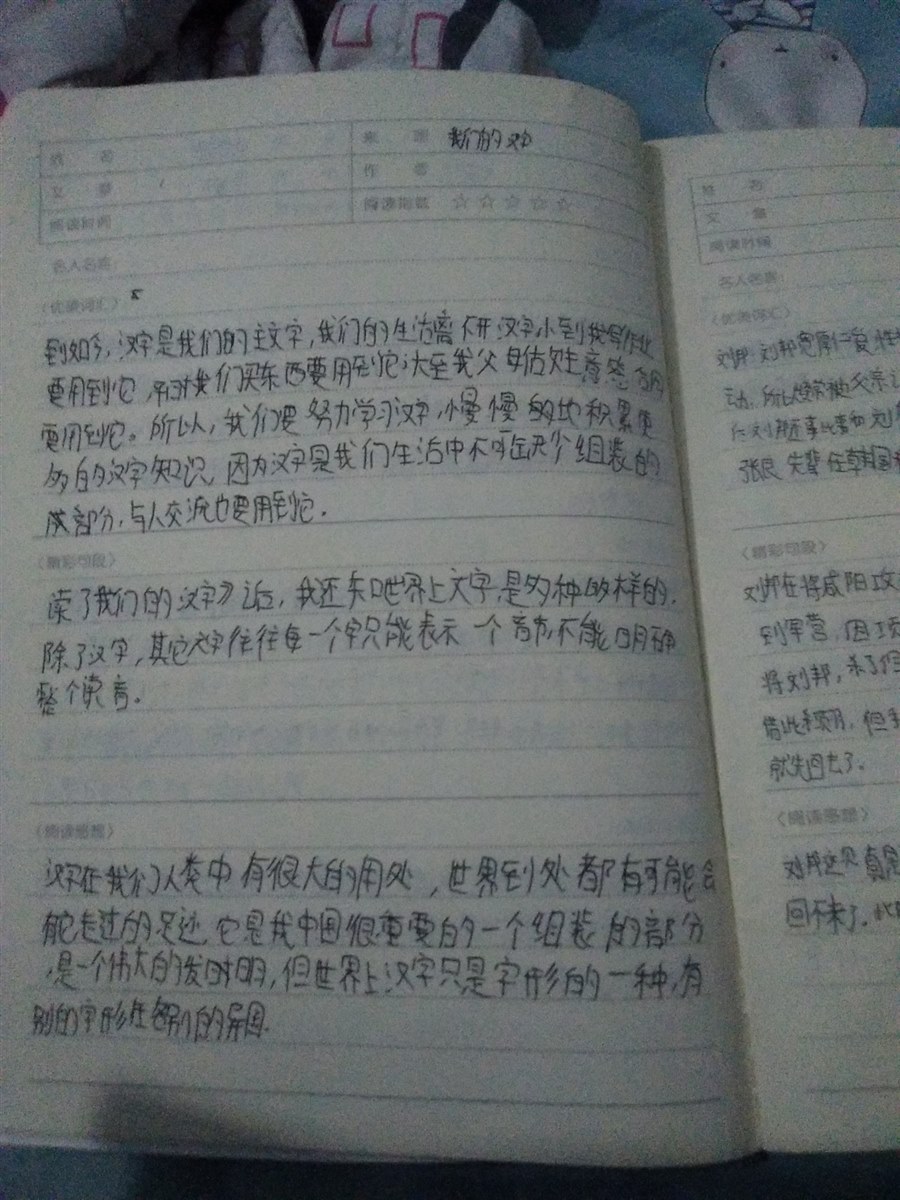 姓 名
来 源 我们的汉字
文 章
作 者
阅读时间
阅读指数 ☆☆☆☆☆
名人名言:
〈优美词汇〉
到如今,汉字是我们的主文字,我们的生活离不开汉字小到我写作业
要用到它,有时我们买东西要用到它,大至我父母做生意签合同
要用到它。所以,我们要努力学习汉字,慢慢的地积累更
多的汉字知识,因为汉字是我们生活中不可缺少组装的
成部分,与人交流也要用到它。
〈精彩句段〉
读了我们的汉字》后,我还知世界上文字是多种多样的,
除了汉字,其它文字往往每一个字只能表示一个音节,不能明确
整个读音。
〈阅读感想〉
汉字在我们人类中有很大的用处,世界到处都有可能会
它走过的足迹,它是我中国很重要的一个组装的部分
,是一个伟大的发明,但世界上汉字只是字形的一种,有
别的字形在别的异国.
姓 名
文 章
阅读时间
名人名言:
〈优美词汇〉
刘邦:刘邦宽厚仁爱,性
动,所以经常被父亲
张良 先辈任韩国
〈精彩句段〉
刘邦在将咸阳攻
到军营,因项
将刘邦,杀了
借此 但
就先回去了。
〈阅读感想〉
刘邦这只真是
回不来了,此